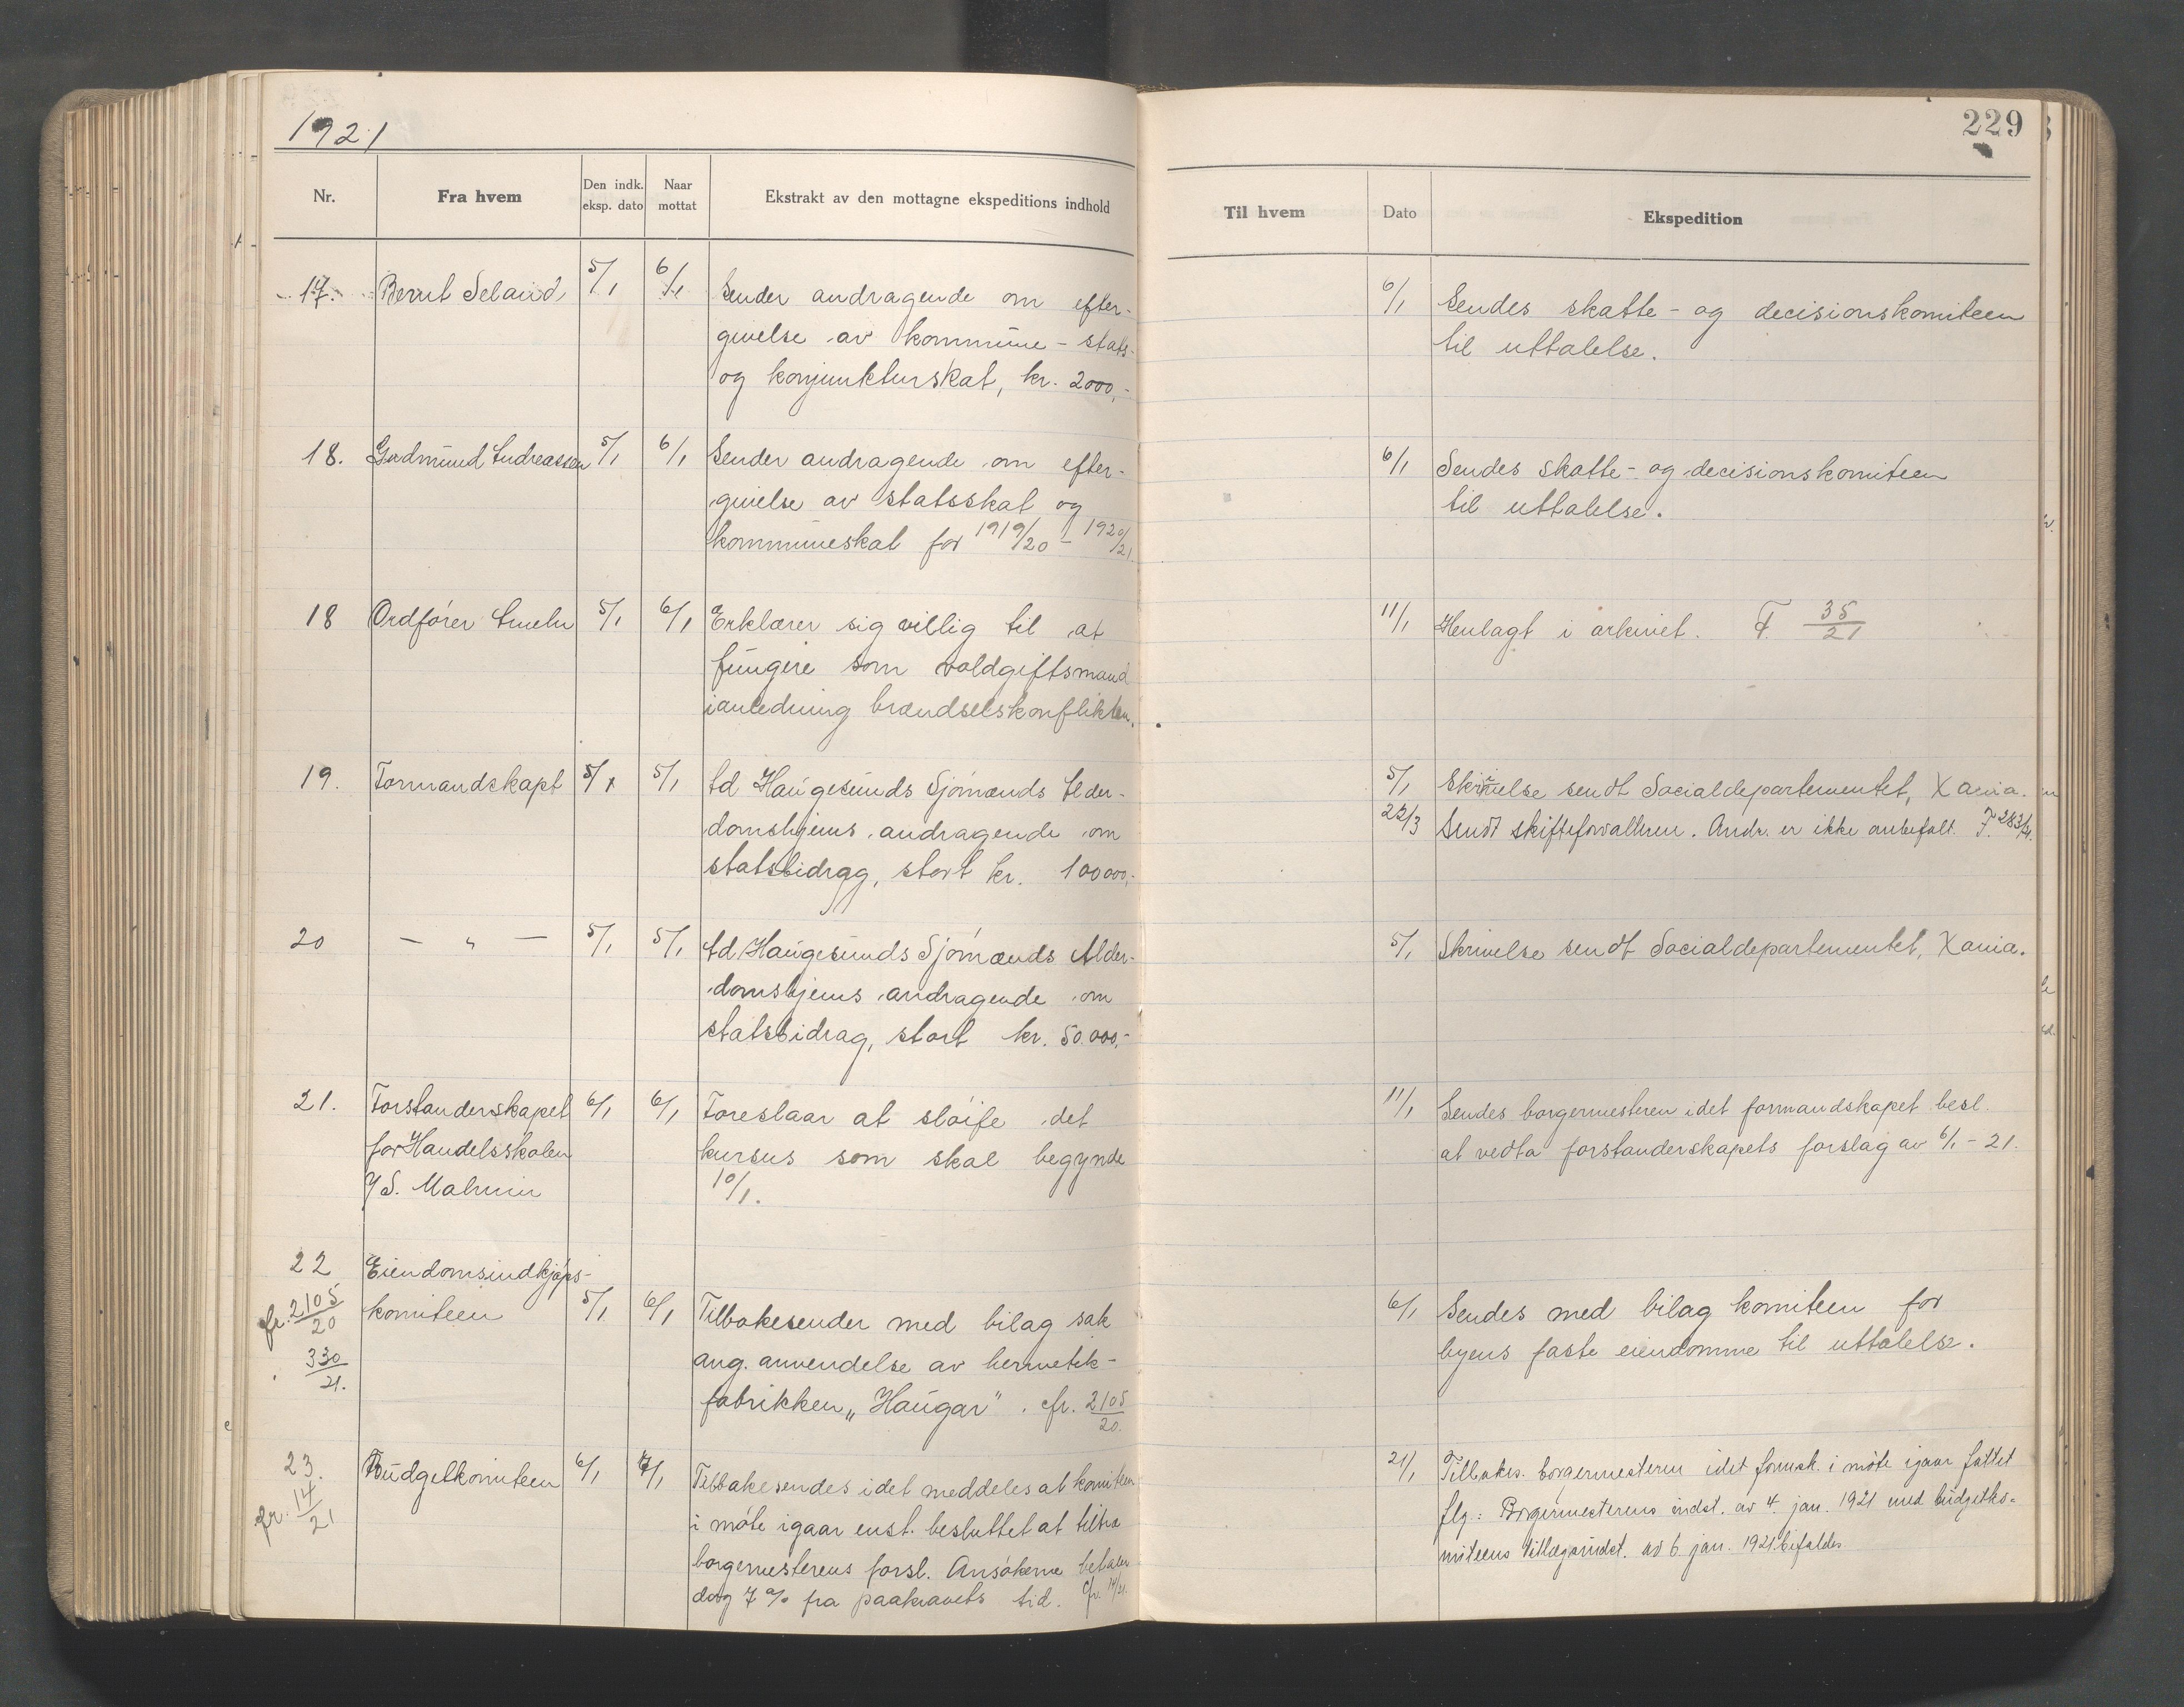 1921
229
Nr.
Fra hvem
Den indk. eksp. dato
Naar mottat
Ekstrakt av den mottagne ekspeditions indhold
Til hvem
Dato
Ekspedition
17. Bernt Seland 5/1 6/1 Sender andragende om efter-
givelse av kommune- stats-
og konjunkturskat, kr. 2000,-
6/1 Sendes skatte- og decisionskomiteen
til uttalelse.
18. Gudmund Andreassen 5/1 6/1 Sender andragende om efter-
givelse av statsskat og
kommuneskat for 1919/20 - 1920/21.
6/1 Sendes skatte- og decisionskomiteen
til uttalelse.
18 Ordfører 5/1 6/1 Erklærer sig villig til at
fungere som voldgiftsmand
ianledning brændselskonflikten.
11/1 Henlagt i arkivet. F. 35/21
19. Formandskapt 5/1 5/1 Ad Haugesunds Sjømænds Alder-
domshjems andragende om
statsbidrag, stort kr. 100000,-
5/1 Skrivelse sendt Socialdepartementet, Xania.
22/3 Sendt skifteforvalteren. Andr. er ikke anbefalt. F. 283/21.
20 — " — 5/1 5/1 Ad Haugesunds Sjømænds Alder-
domshjems andragende om
statsbidrag, stort kr. 50.000,-
5/1 Skrivelse sendt Socialdepartementet, Xania.
21. Forstanderskapet 6/1 6/1 Foreslaar at sløife det
for Handelsskolen kursus som skal begynde
v/ S. Malmin 10/1.
11/1 Sendes borgermesteren idet formandskapet besl.
at vedta forstanderskapets forslag av 6/1-21.
22 Eiendomsindkjøps-
fr. 2105/20 komiteen 5/1 6/1 Tilbakesender med bilag sak
330/21. ang. anvendelse av hermetik-
fabrikken „Haugar". cfr. 2105/20.
6/1 Sendes med bilag komiteen for
byens faste eiendomme til uttalelse.
23. Budgetkomiteen 6/1 7/1 Tilbakesendes idet meddeles at komiteen
fr. 14/21 i møte igaar enst. besluttet at tiltræ
borgermesterens forsl. Ansøkerne betaler
dog 7 % fra paakravets tid. Cfr. 14/21.
21/1 Tilbakes. borgermesteren idet formsk. i møte igaar fattet
flg.: Borgermesterens indst. av 4. jan. 1921 med budgetko-
miteens tillægsindst. av 6. jan. 1921 bifaldes